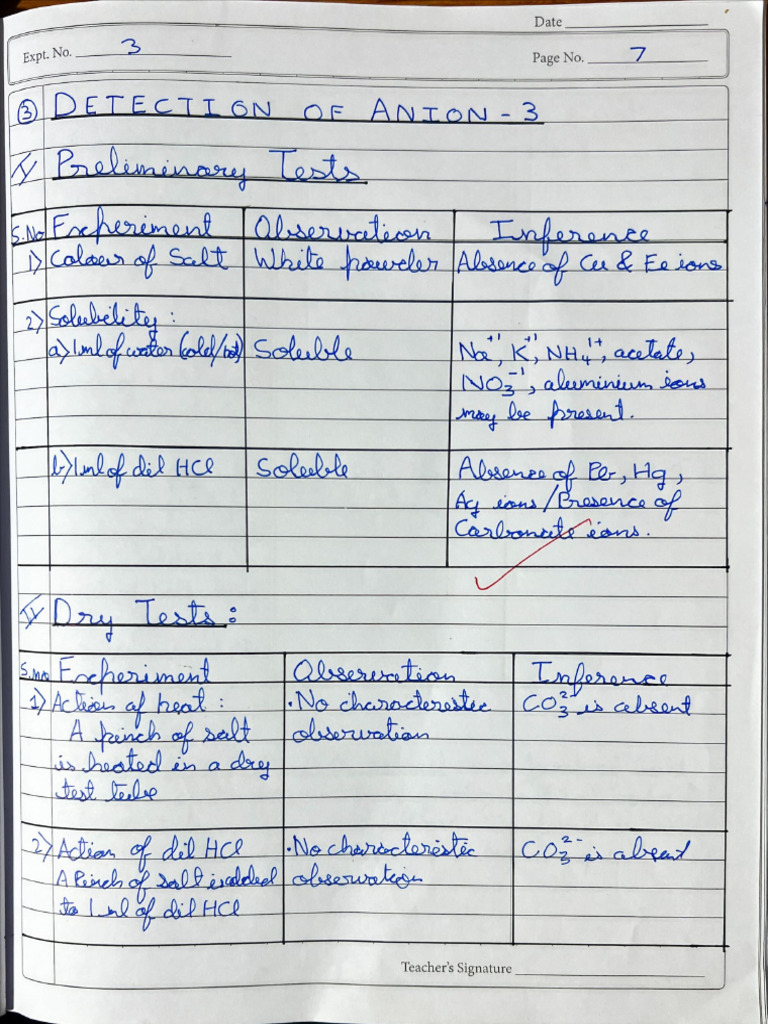 Date
Expt. No. 3
Page No. 7
③ DETECTION OF ANION - 3
I/ Preliminary Tests
S.No Experiment Observation Inference
1) Colour of Salt White powder Absence of Cu & Fe ions
2) Solubility :
a) 1ml of water (cold/hot) Soluble Na⁺¹, K⁺¹, NH₄¹⁺, acetate,
NO₃⁻¹, aluminium ions
may be present.
b) 1ml of dil HCl Soluble Absence of Pb, Hg,
Ag ions / Presence of
Carbonate ions.
II/ Dry Tests :
S.no Experiment Observation Inference
1) Action of heat : • No characterestic CO₃²⁻ is absent
A pinch of salt observation
is heated in a dry
test tube
2) Action of dil HCl • No characteristic CO₃²⁻ is absent
A Pinch of salt is added observation
to 1 ml of dil HCl
Teacher's Signature